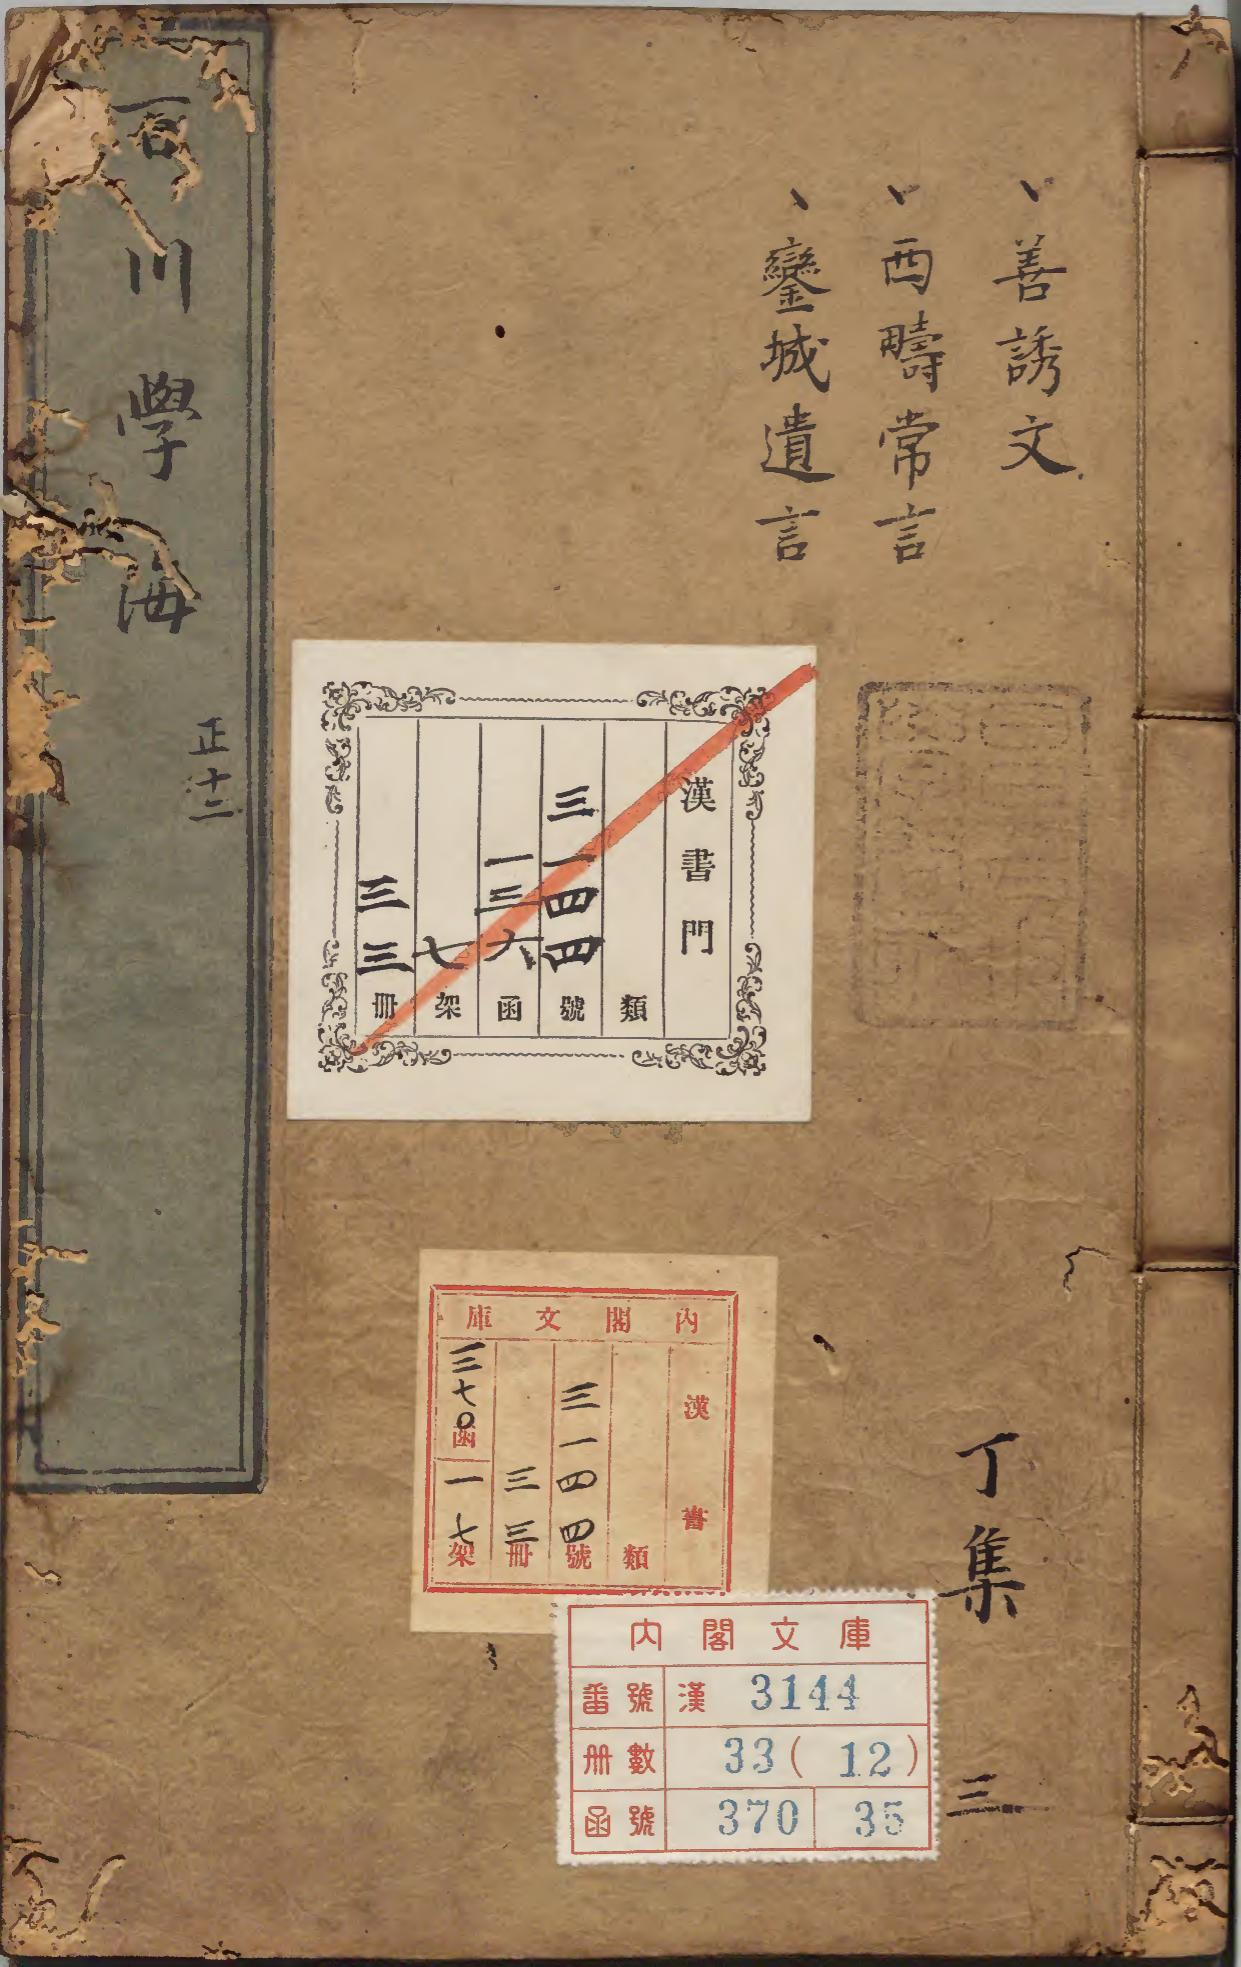 善誘文
西疇常言
欒城遺言
百川學海
正十二
漢書門
類
三一四四號
一三六函
七架
三三冊
內閣文庫
漢書
類
三一四四號
三三冊
三七〇函
一七架
丁集
三
內閣文庫
番號 漢 3144
冊數 33(12)
函號 370 35